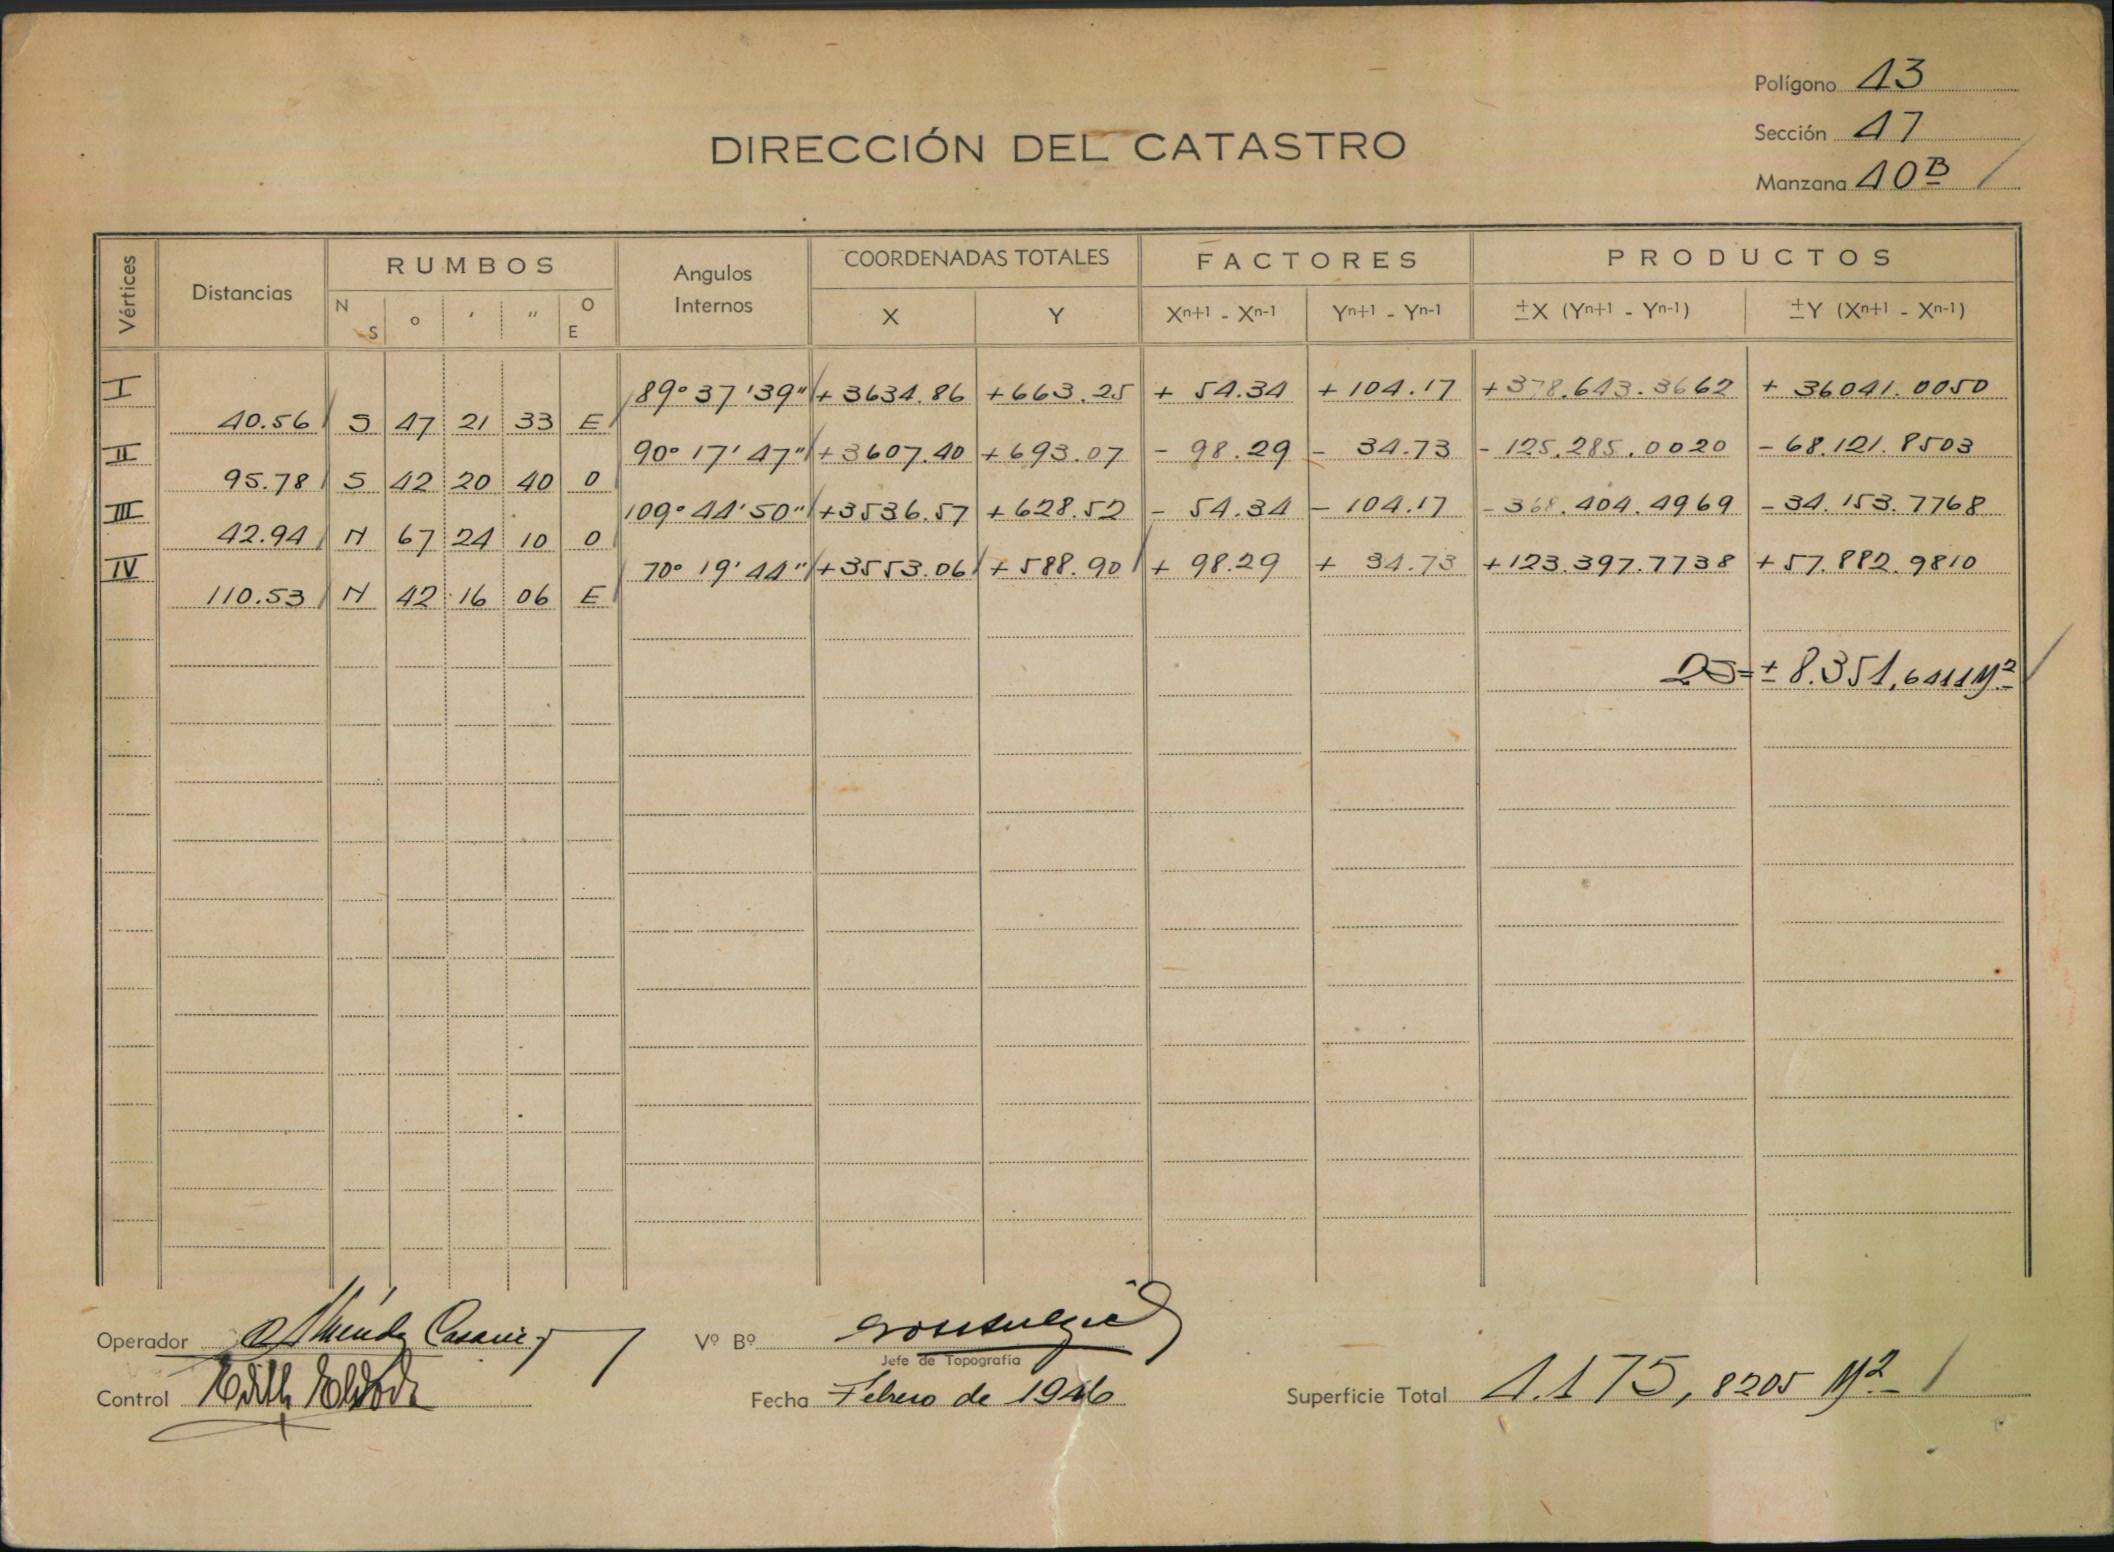 Polígono 43
Sección 47
Manzana 40 B
DIRECCIÓN DEL CATASTRO
Vértices Distancias RUMBOS Angulos Internos COORDENADAS TOTALES FACTORES PRODUCTOS
N S ° ' " O E X Y Xn+1 - Xn-1 Yn+1 - Yn-1 ±X (Yn+1 - Yn-1) ±Y (Xn+1 - Xn-1)
I 89° 37' 39" + 3634.86 + 663.25 + 54.34 + 104.17 + 378.643.3662 + 36041.0050
40.56 S 47 21 33 E
II 90° 17' 47" + 3607.40 + 693.07 - 98.29 - 34.73 - 125.285.0020 - 68.121.8503
95.78 S 42 20 40 O
III 109° 44' 50" + 3536.57 + 628.52 - 54.34 - 104.17 - 368.404.4969 - 34.153.7768
42.94 N 67 24 10 O
IV 70° 19' 44" + 3553.06 + 588.90 + 98.29 + 34.73 + 123.397.7738 + 57.882.9810
110.53 N 42 16 06 E
2S = ± 8.351,6411 M2
Operador
Vº Bº
Jefe de Topografía
Control
Fecha Febrero de 1946
Superficie Total 4.175,8205 M2